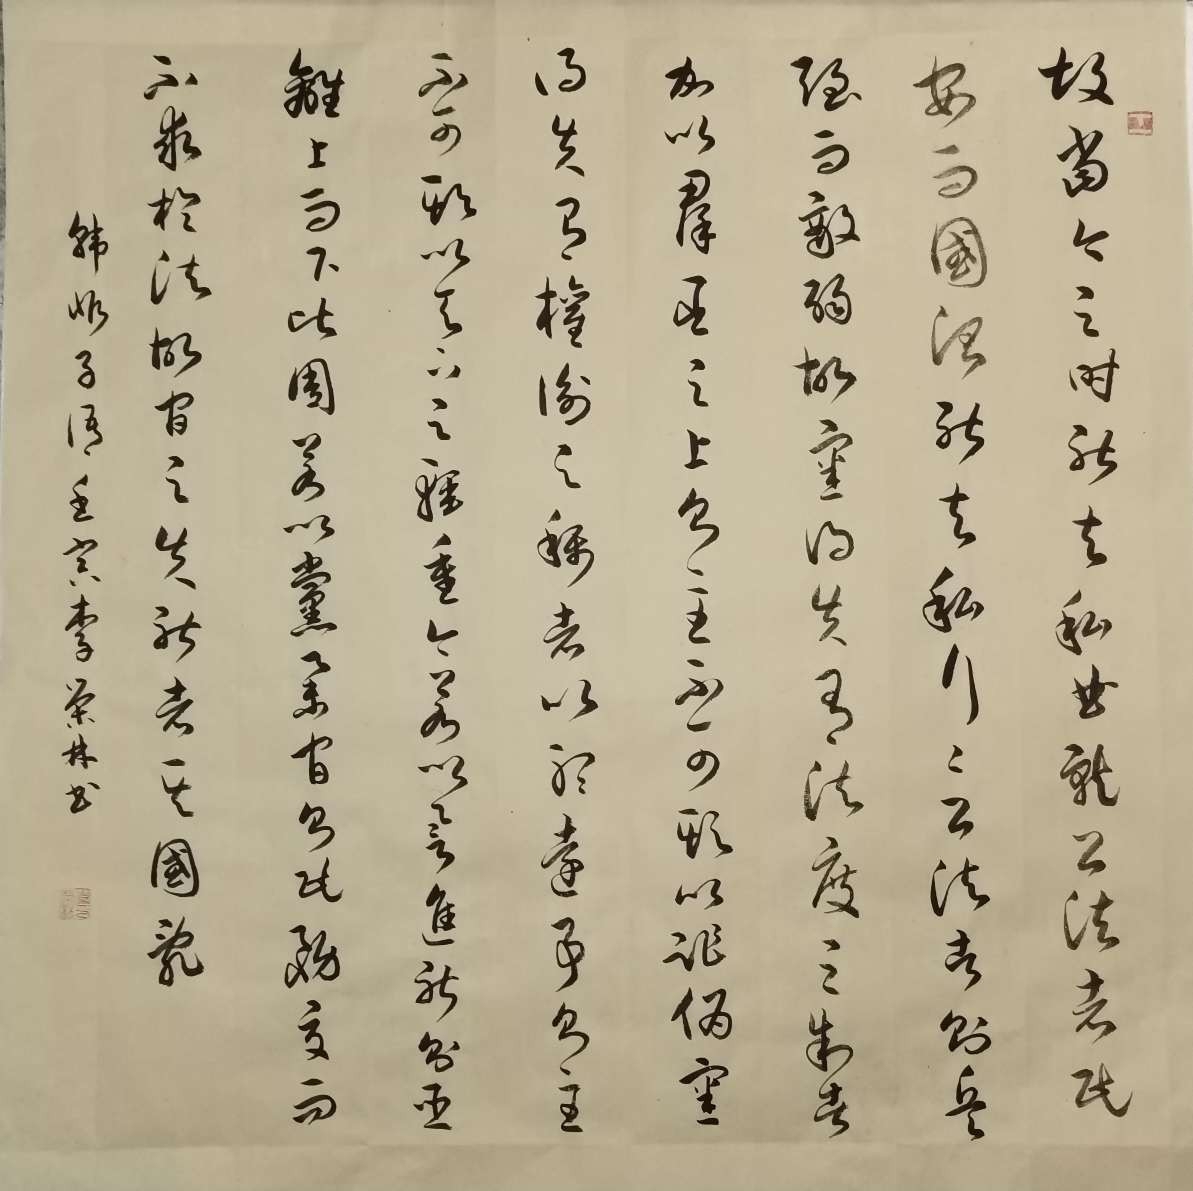 故當今之時能去私曲就公法者民
安而國治能去私行行公法者則兵
強而敵弱故審得失有法度之制者
加以羣臣之上則主不可欺以詐偽審
得失有權衡之稱者以聽遠事則主
不可欺以天下之輕重今若以譽進能則臣
離上而下比周若以黨舉官則民務交而
不求於法故官之失能者其國亂
韓非子語壬寅李榮林书